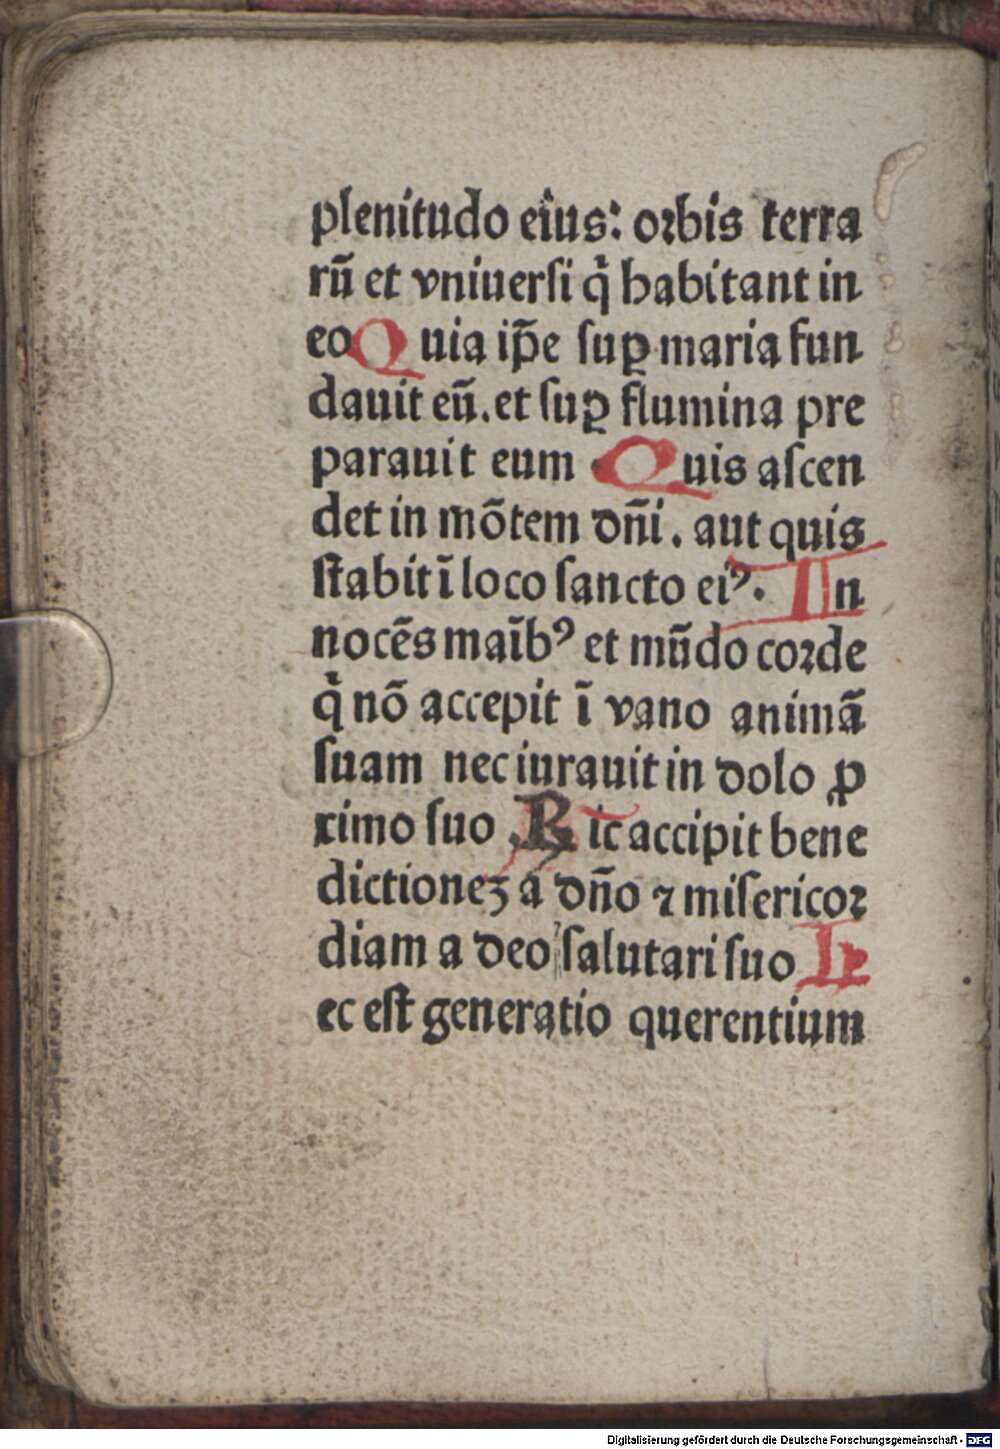 plenitudo eius: orbis terra
rū et vniuersi q̇ habitant in
eo Quia ip̄e suꝑ maria fun
dauit eū. et suꝑ flumina pre
parauit eum Quis ascen
det in mōtem dn̄i. aut quis
stabit ī loco sancto eiꝰ. In
nocēs maībꝰ et mūdo corde
q̇ nō accepit ī vano animā
suam nec iurauit in dolo ꝓ
ximo suo . Hic accipit bene
dictioneꝫ a dn̄o ⁊ misericor
diam a deo salutari suo H
ec est generatio querentium
Digitalisierung gefördert durch die Deutsche Forschungsgemeinschaft - DFG